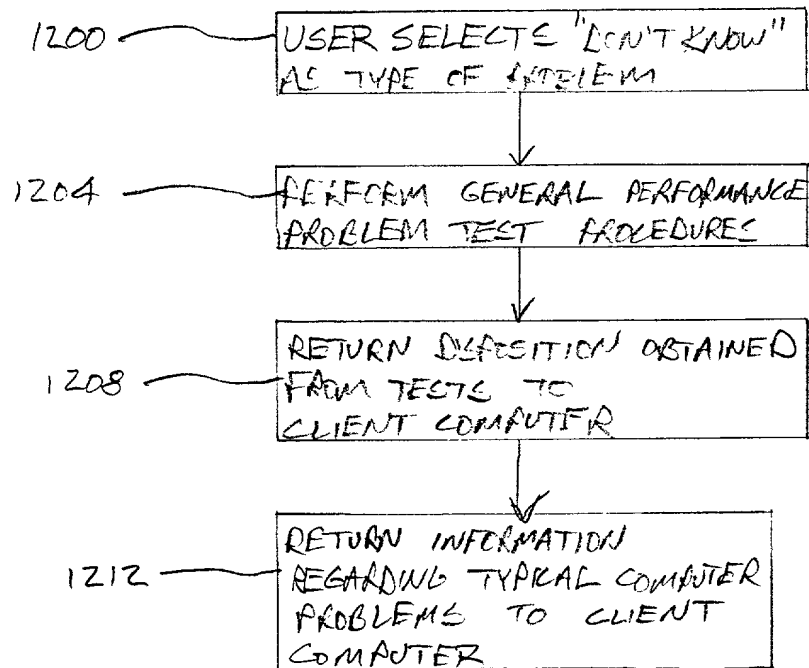 1200
USER SELECTS "DON'T KNOW"
AS TYPE OF PROBLEM
1204
PERFORM GENERAL PERFORMANCE
PROBLEM TEST PROCEDURES
1208
RETURN DISPOSITION OBTAINED
FROM TESTS TO
CLIENT COMPUTER
1212
RETURN INFORMATION
REGARDING TYPICAL COMPUTER
PROBLEMS TO CLIENT
COMPUTER